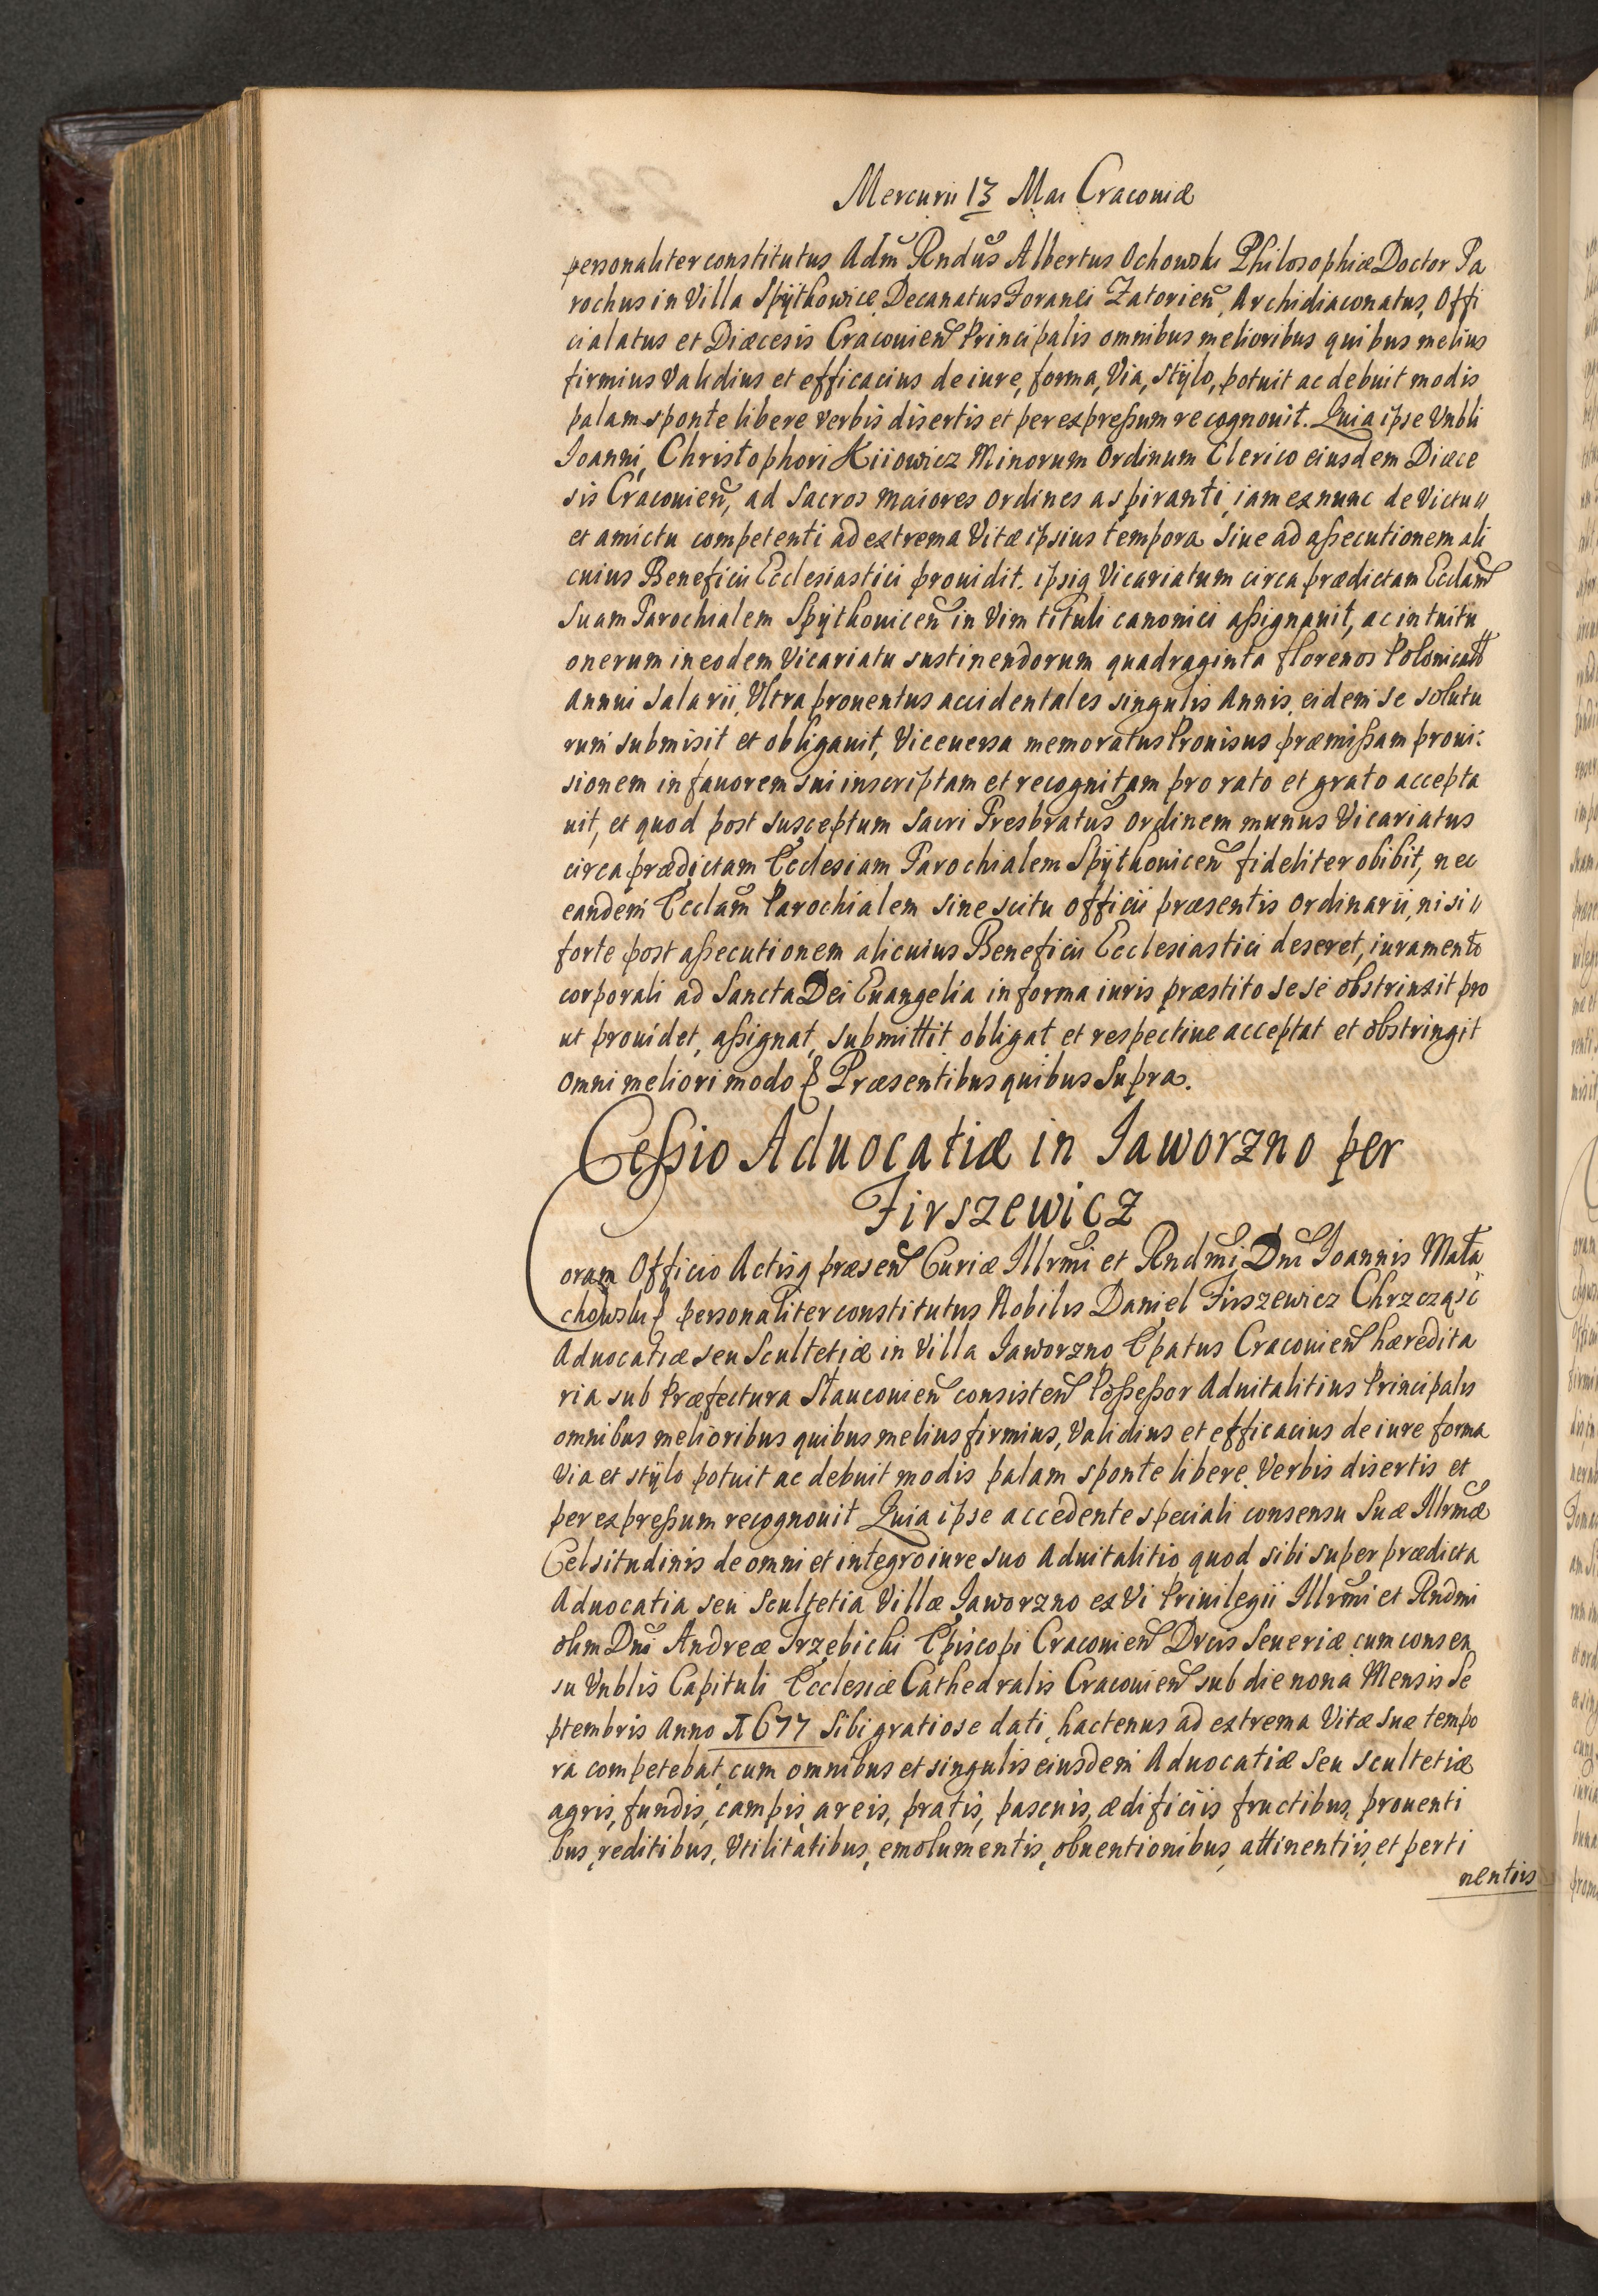 Mercurii 13 Mai Cracouiæ
personaliter constitutus Adm̃ Rndus Albertus Ochowski Philosophiæ Doctor Pa
rochus in Villa Spÿtkowice Decanatus Foranei Zatorien̄, Archidiaconatus, Offi
cialatus et Diæcesis Cracouien̄ Principalis omnibus melioribus quibus melius
firmius Validius et efficacius de iure, forma, Via, stÿlo, potuit ac debuit modis
palam sponte libere verbis disertis et per expreßum recognouit. Quia ipse Vnbli
Joanni, Christophori Kiiowicz Minorum Ordinum Clerico eiusdem Diæce
sis Cracouien̄, ad Sacros maiores ordines aspiranti, iam ex nunc de Victu〃
et amictu competenti ad extrema Vitæ ipsius tempora siue ad aßecutionem ali
cuius Beneficii Ecclesiastici prouidit. ipsiq Vicariatum circa prædictam Ecclam̄
suam Parochialem Spÿtkouicen̄ in Vim tituli canonici aßignauit, ac intuitu
onerum in eodem Vicariatu sustinendorum quadraginta florenos Polonicales
Annui Salarii, Vltra prouentus accidentales singulis Annis, eidem se solutu
rum submisit et obligauit, Viceuersa memoratus Prouisus præmißam proui:
sionem in fauorem sui inscriptam et recognitam pro rato et grato accepta
uit, et quod post susceptum Sacri Presbratus ordinem munus Vicariatus
circa prædictam Ecclesiam Parochialem Spÿtkouicen̄ fideliter obibit, nec
eandem Ecclam̄ Parochialem sine scitu officii præsentis ordinarii, nisi〃
forte post aßecutionem alicuius Beneficii Ecclesiastici deseret, iuramento
corporali ad Sancta Dei Euangelia in forma iuris præstito sese obstrinxit pro
ut prouidet, aßignat, submittit obligat et respectiue acceptat et obstringit
omni meliori modo & Præsentibus quibus Supra.
Ceßio Aduocatiæ in Jaworzno per
Firszewicz
Coram Officio Actisq præsen̄ Curiæ Illrmi et Rndmi Dni Joannis Mała
chowski & personaliter constitutus Nobilis Daniel Firszewicz Chrzcząść
Aduocatiæ seu Scultetiæ in Villa Jaworzno Epatus Cracouien̄ hæredita
ria sub Præfectura Slaucouien̄ consisten̄ Poßeßor Aduitalitius Principalis
omnibus melioribus quibus melius firmius, Validius et efficacius de iure forma
Via et stÿlo potuit ac debuit modis palam sponte libere Verbis disertis et
per expreßum recognouit Quia ipse accedente speciali consensu Suæ Illrmæ
Celsitudinis de omni et integro iure suo Aduitalitio quod sibi super prædicta
Aduocatia seu Scultetia Villæ Jaworzno ex Vi Priuilegii Illrmi et Rndmi
olim Dni Andreæ Trzebicki Episcopi Cracouien̄ Ducis Seueriæ cum consen
su Vnblis Capituli Ecclesiæ Cathedralis Cracouien̄ sub die nona Mensis Se
ptembris Anno 1677 Sibi gratiose dati, hactenus ad extrema Vitæ suæ tempo
ra competebat, cum omnibus et singulis eiusdem Aduocatiæ seu scultetiæ
agris, fundis, campis, areis, pratis, pascuis, ædificiis fructibus, prouenti
bus, reditibus, Vtilitatibus, emolumentis, obuentionibus, attinentiis, et perti
nentiis